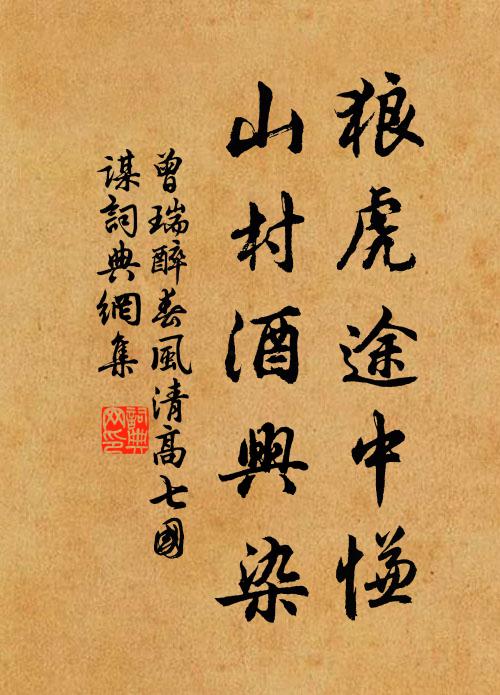 狼虎途中慊
山村酒興染
曾瑞醉春風清高七國
謀詞典網集
詞典
网印